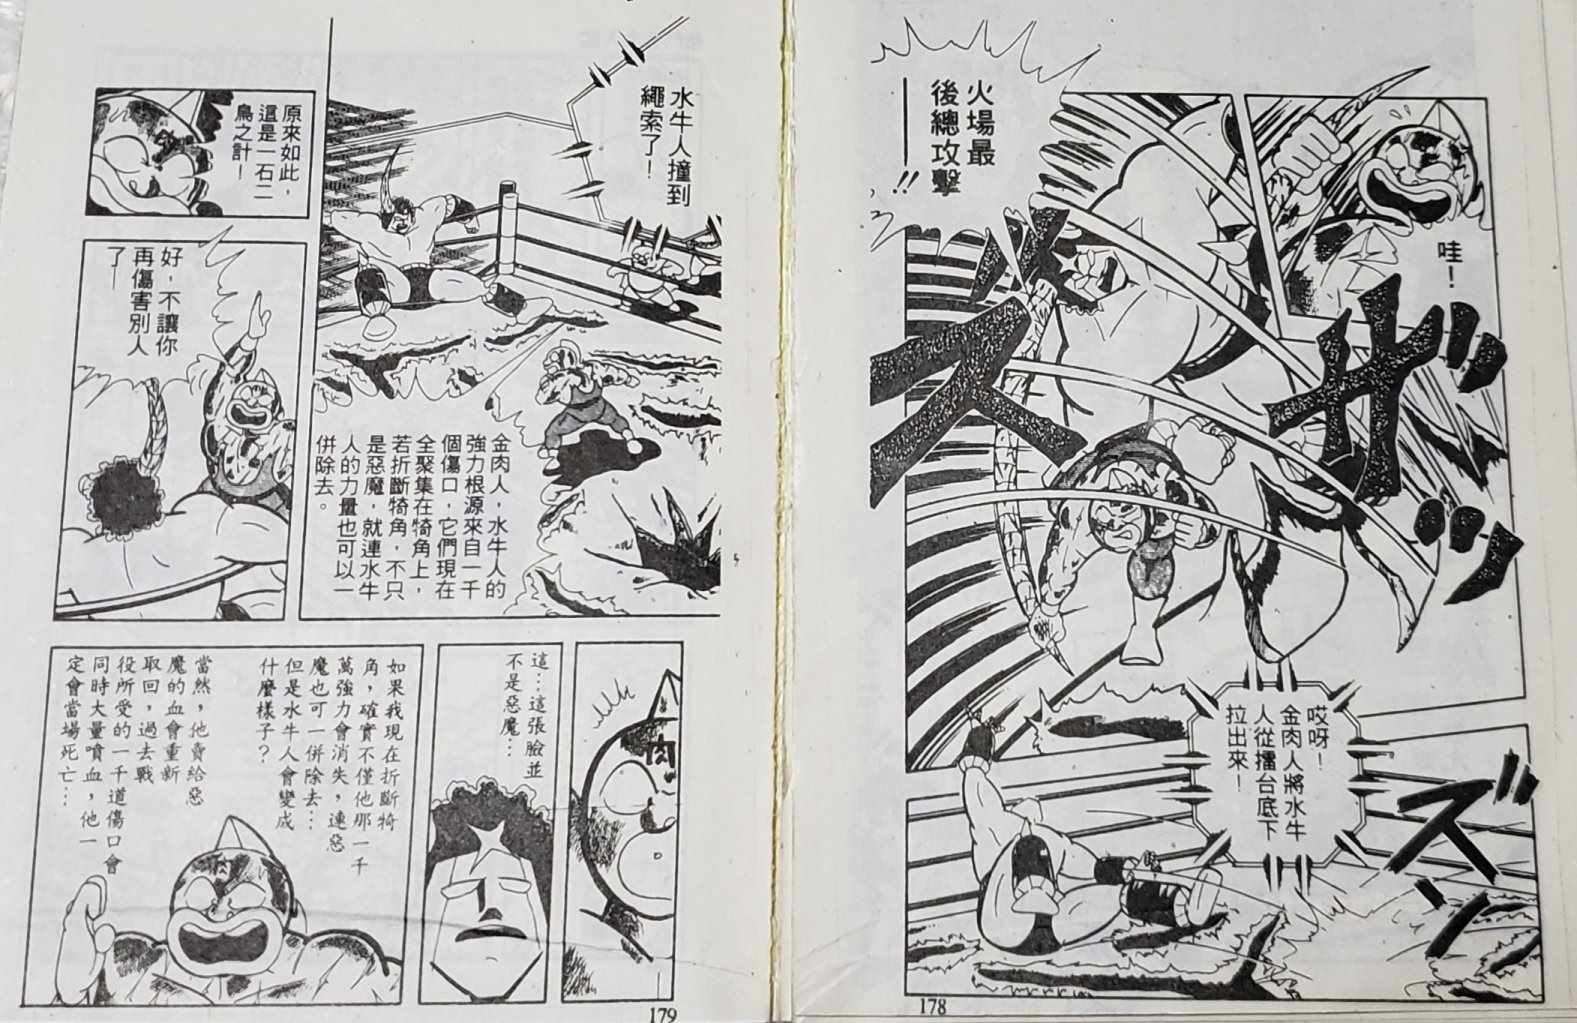 哇！
火場最
後總攻擊
——!!
ズザッッ
哎呀！
金肉人將水牛
人從擂台底下
拉出來！
ズン
178
水牛人撞到
繩索了！
原來如此，
這是一石二
鳥之計！
金肉人，水牛人的
強力根源來自一千
個傷口，它們現在
全聚集在犄角上，
若折斷犄角，不只
是惡魔，就連水牛
人的力量也可以一
併除去。
好，不讓你
再傷害別人
了—
肉
這…這張臉並
不是惡魔…
如果我現在折斷犄
角，確實不僅他那一千
萬強力會消失，連惡
魔也可一併除去…
但是水牛人會變成
什麼樣子？
當然，他賣給惡
魔的血會重新
取回，過去戰
役所受的一千道傷口會
同時大量噴血，他一
定會當場死亡…
179